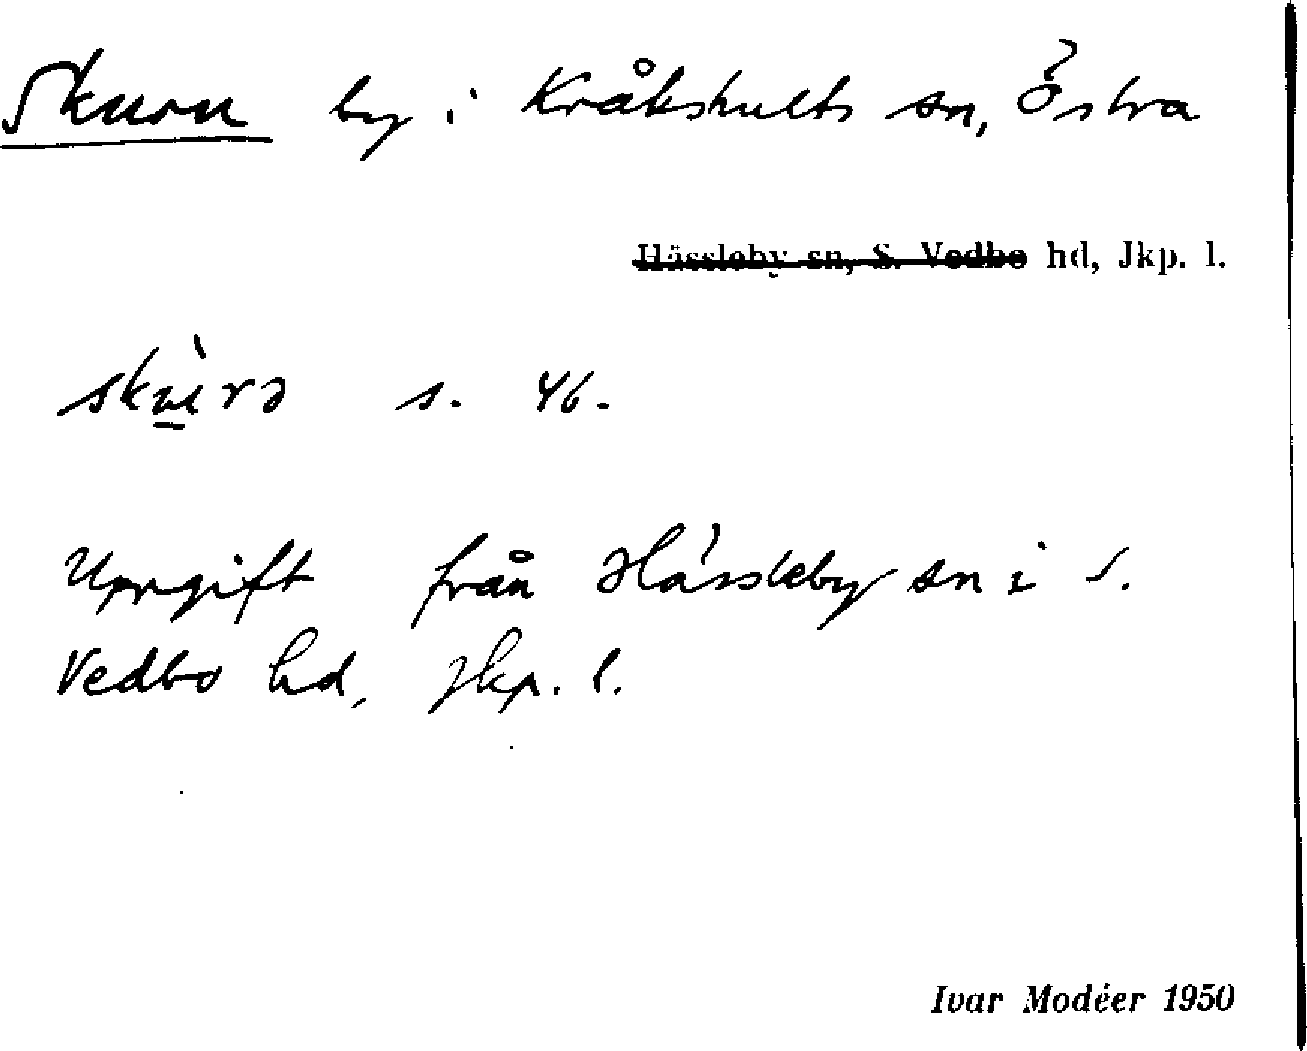 Skuru by i Kråkshults sn, Östra
Hässleby sn, S. Vedbo hd, Jkp. l.
s. 46.
Uppgift från Hässleby sn i S.
Vedbo hd, Jkp. l.
Ivar Modéer 1950